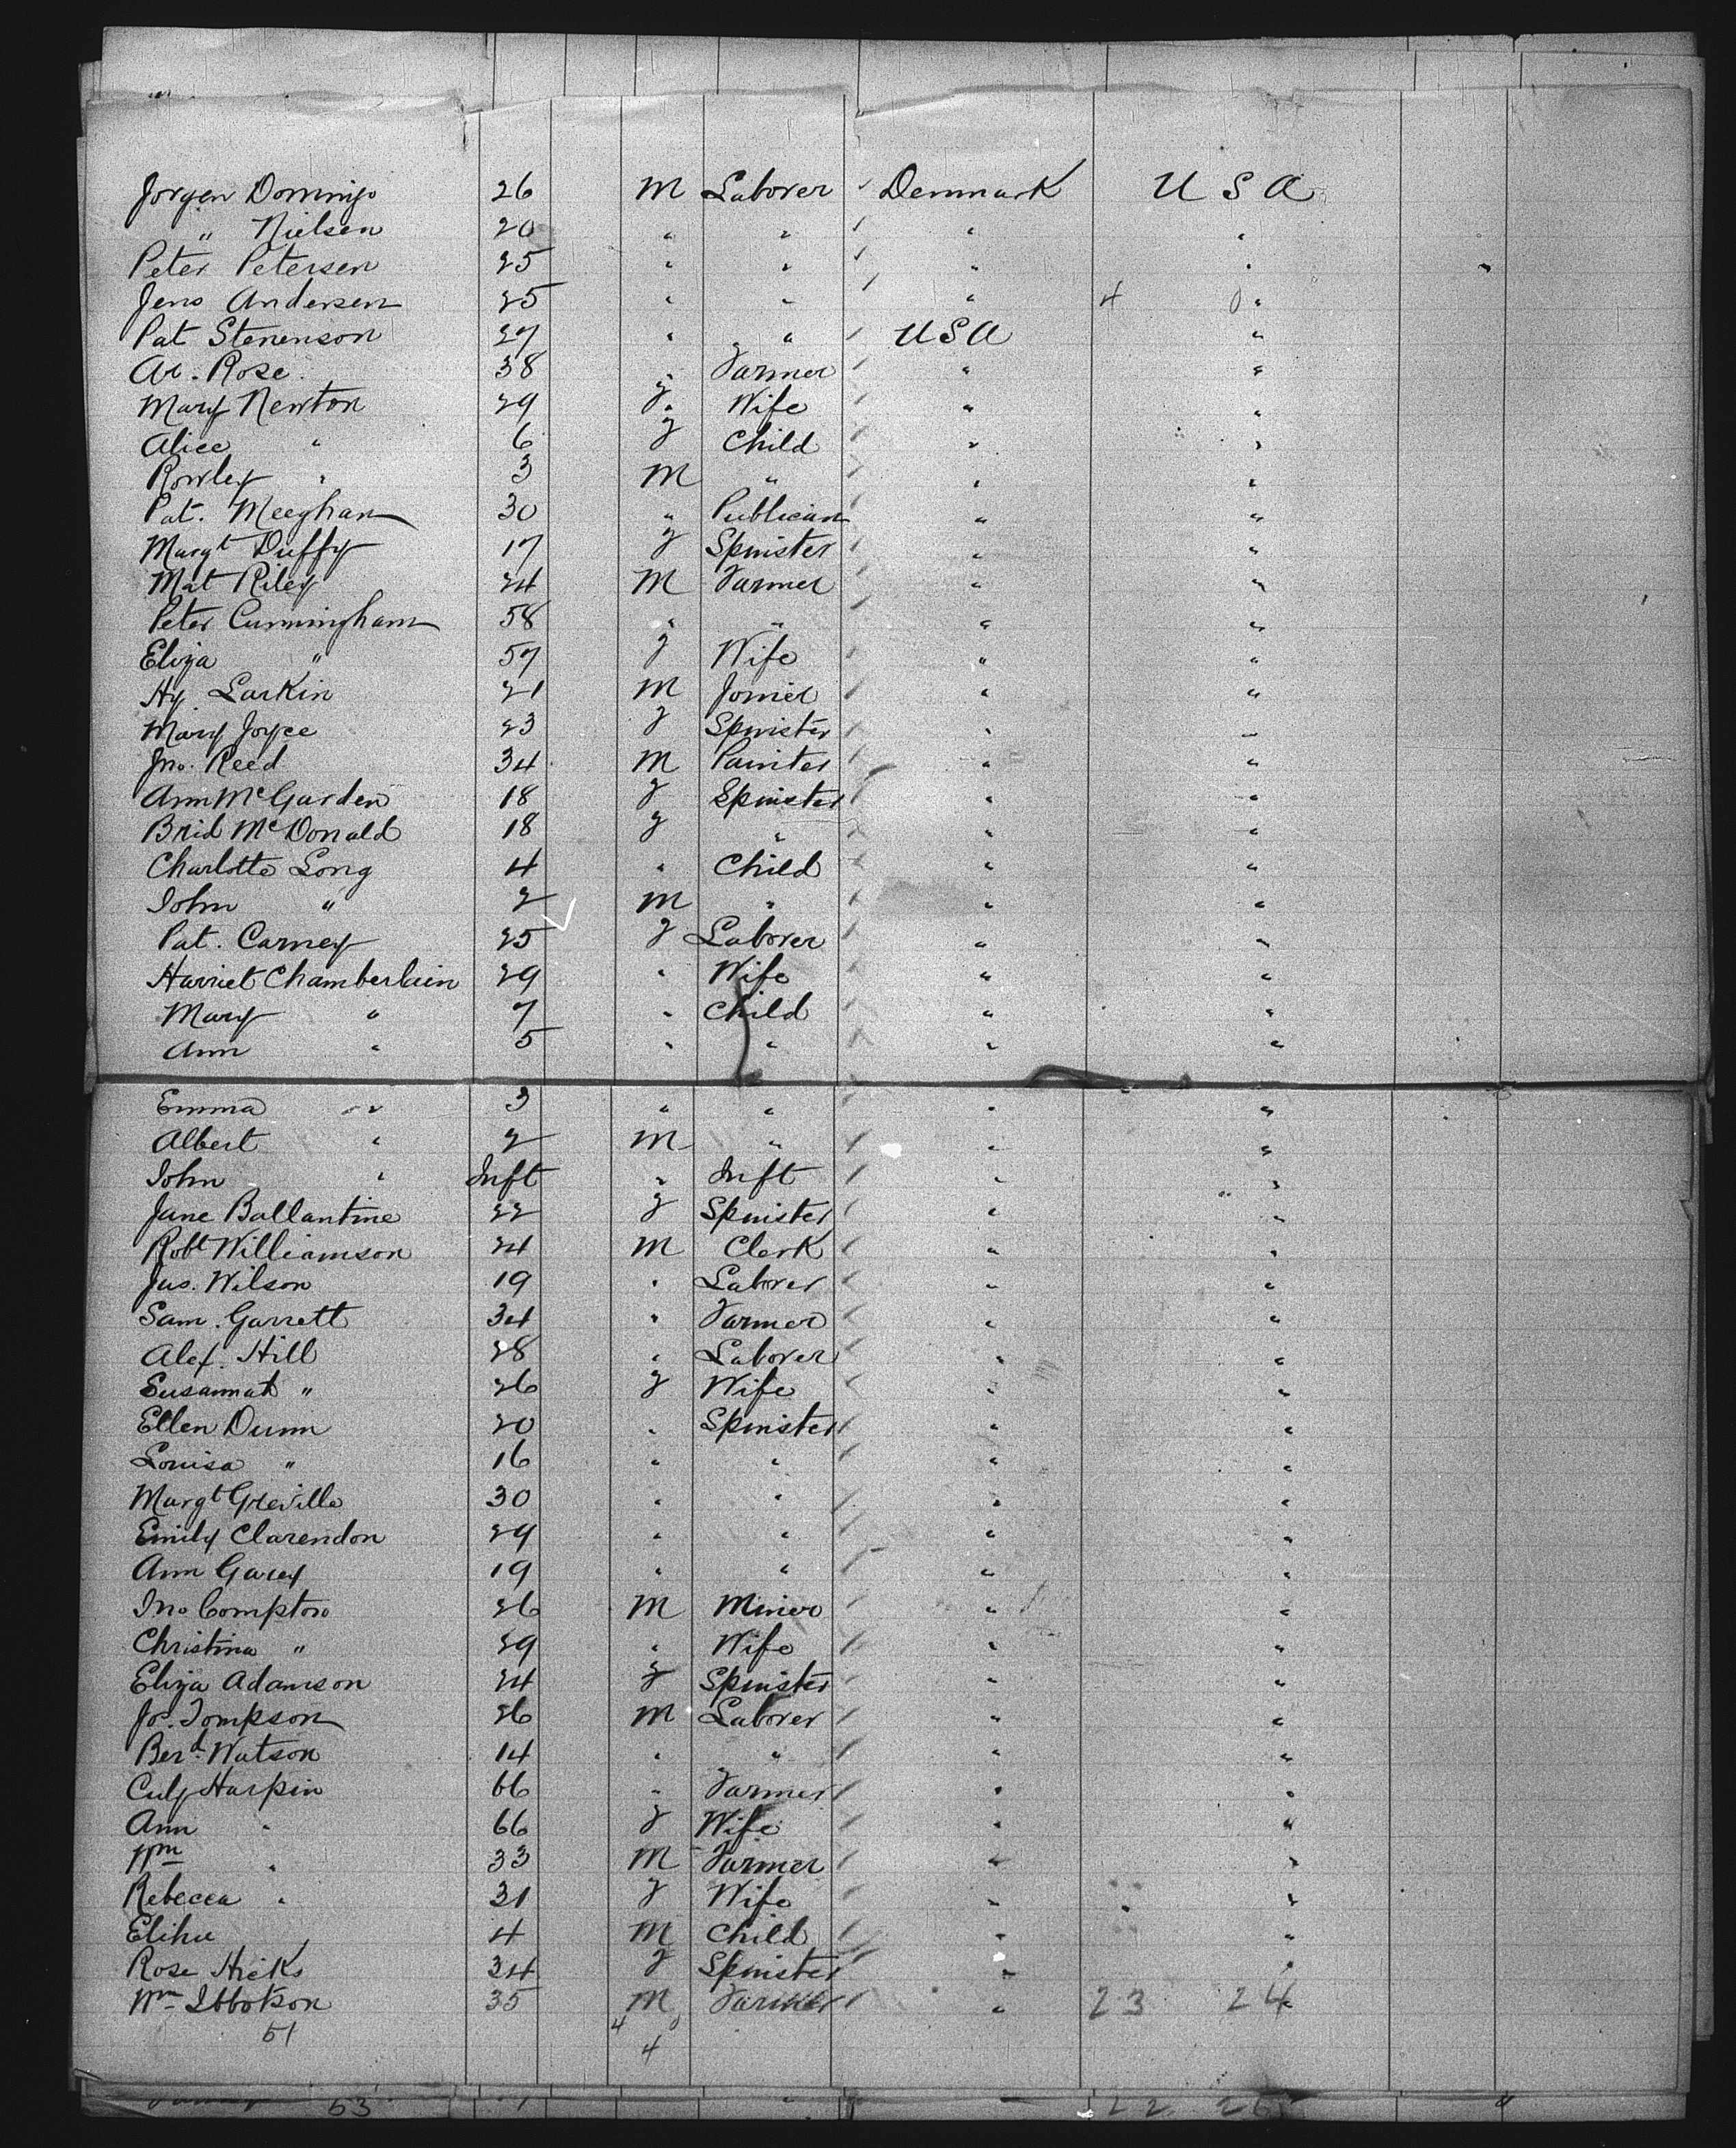 Jorgen Domingo 26 M Laborer Denmark U S A
" Nielsen 20 " " " "
Peter Petersen 25 " " " "
Jens Andersen 25 " " " 4 0 "
Pat Stenenson 27 " " USA "
Ar. Rose 38 " Farmer " "
Mary Newton 29 F Wife " "
Alice " 6 F Child " "
Rowley " 3 M " " "
Pat. Meeghan 30 " Publican " "
Margt Duffy 17 F Spinster " "
Mat Riley 24 M Farmer " "
Peter Cunningham 58 " " " "
Eliza " 57 F Wife " "
Hy. Larkin 21 M Joiner " "
Mary Joyce 23 F Spinster " "
Jno. Reed 34 M Painter " "
Ann McGarden 18 F Spinster " "
Brid McDonald 18 F " " "
Charlotte Long 4 " Child " "
John " 2 M " " "
Pat. Carney 25 F Laborer " "
Harriet Chamberlain 29 " Wife " "
Mary " 7 " Child " "
Ann " 5 " " " "
Emma " 3 " " " "
Albert " 2 M " " "
John " Inft " Inft " "
Jane Ballantine 22 F Spinster " "
Robt Williamson 24 M Clerk " "
Jas. Wilson 19 " Laborer " "
Sam. Garrett 34 " Farmer " "
Alex. Hill 28 " Laborer " "
Susannah " 26 F Wife " "
Ellen Dunn 20 " Spinster " "
Louisa " 16 " " " "
Margt Greville 30 " " " "
Emily Clarendon 29 " " " "
Ann Garey 19 " " " "
Jno Compton 26 M Miner " "
Christina " 29 " Wife " "
Eliza Adamson 24 F Spinster " "
Jos. Tompson 26 M Laborer " "
Berd. Watson 14 " " " "
Culy Harpin 66 " Farmer " "
Ann " 66 F Wife " "
Wm " 33 M Farmer " "
Rebecca " 31 F Wife " "
Elihu " 4 M Child " "
Rose Hicks 34 F Spinster " "
Wm Ibbotson 35 M Farmer " 23 24
51 4 0
4
53 22 26